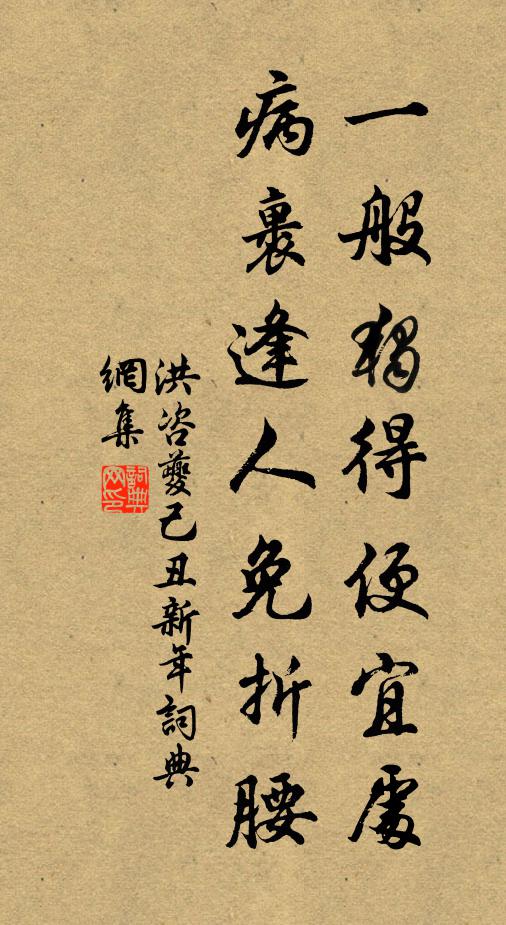 一般獨得便宜處
病裹逢人免折腰
洪咨夔己丑新年詞典
網集
詞典網印